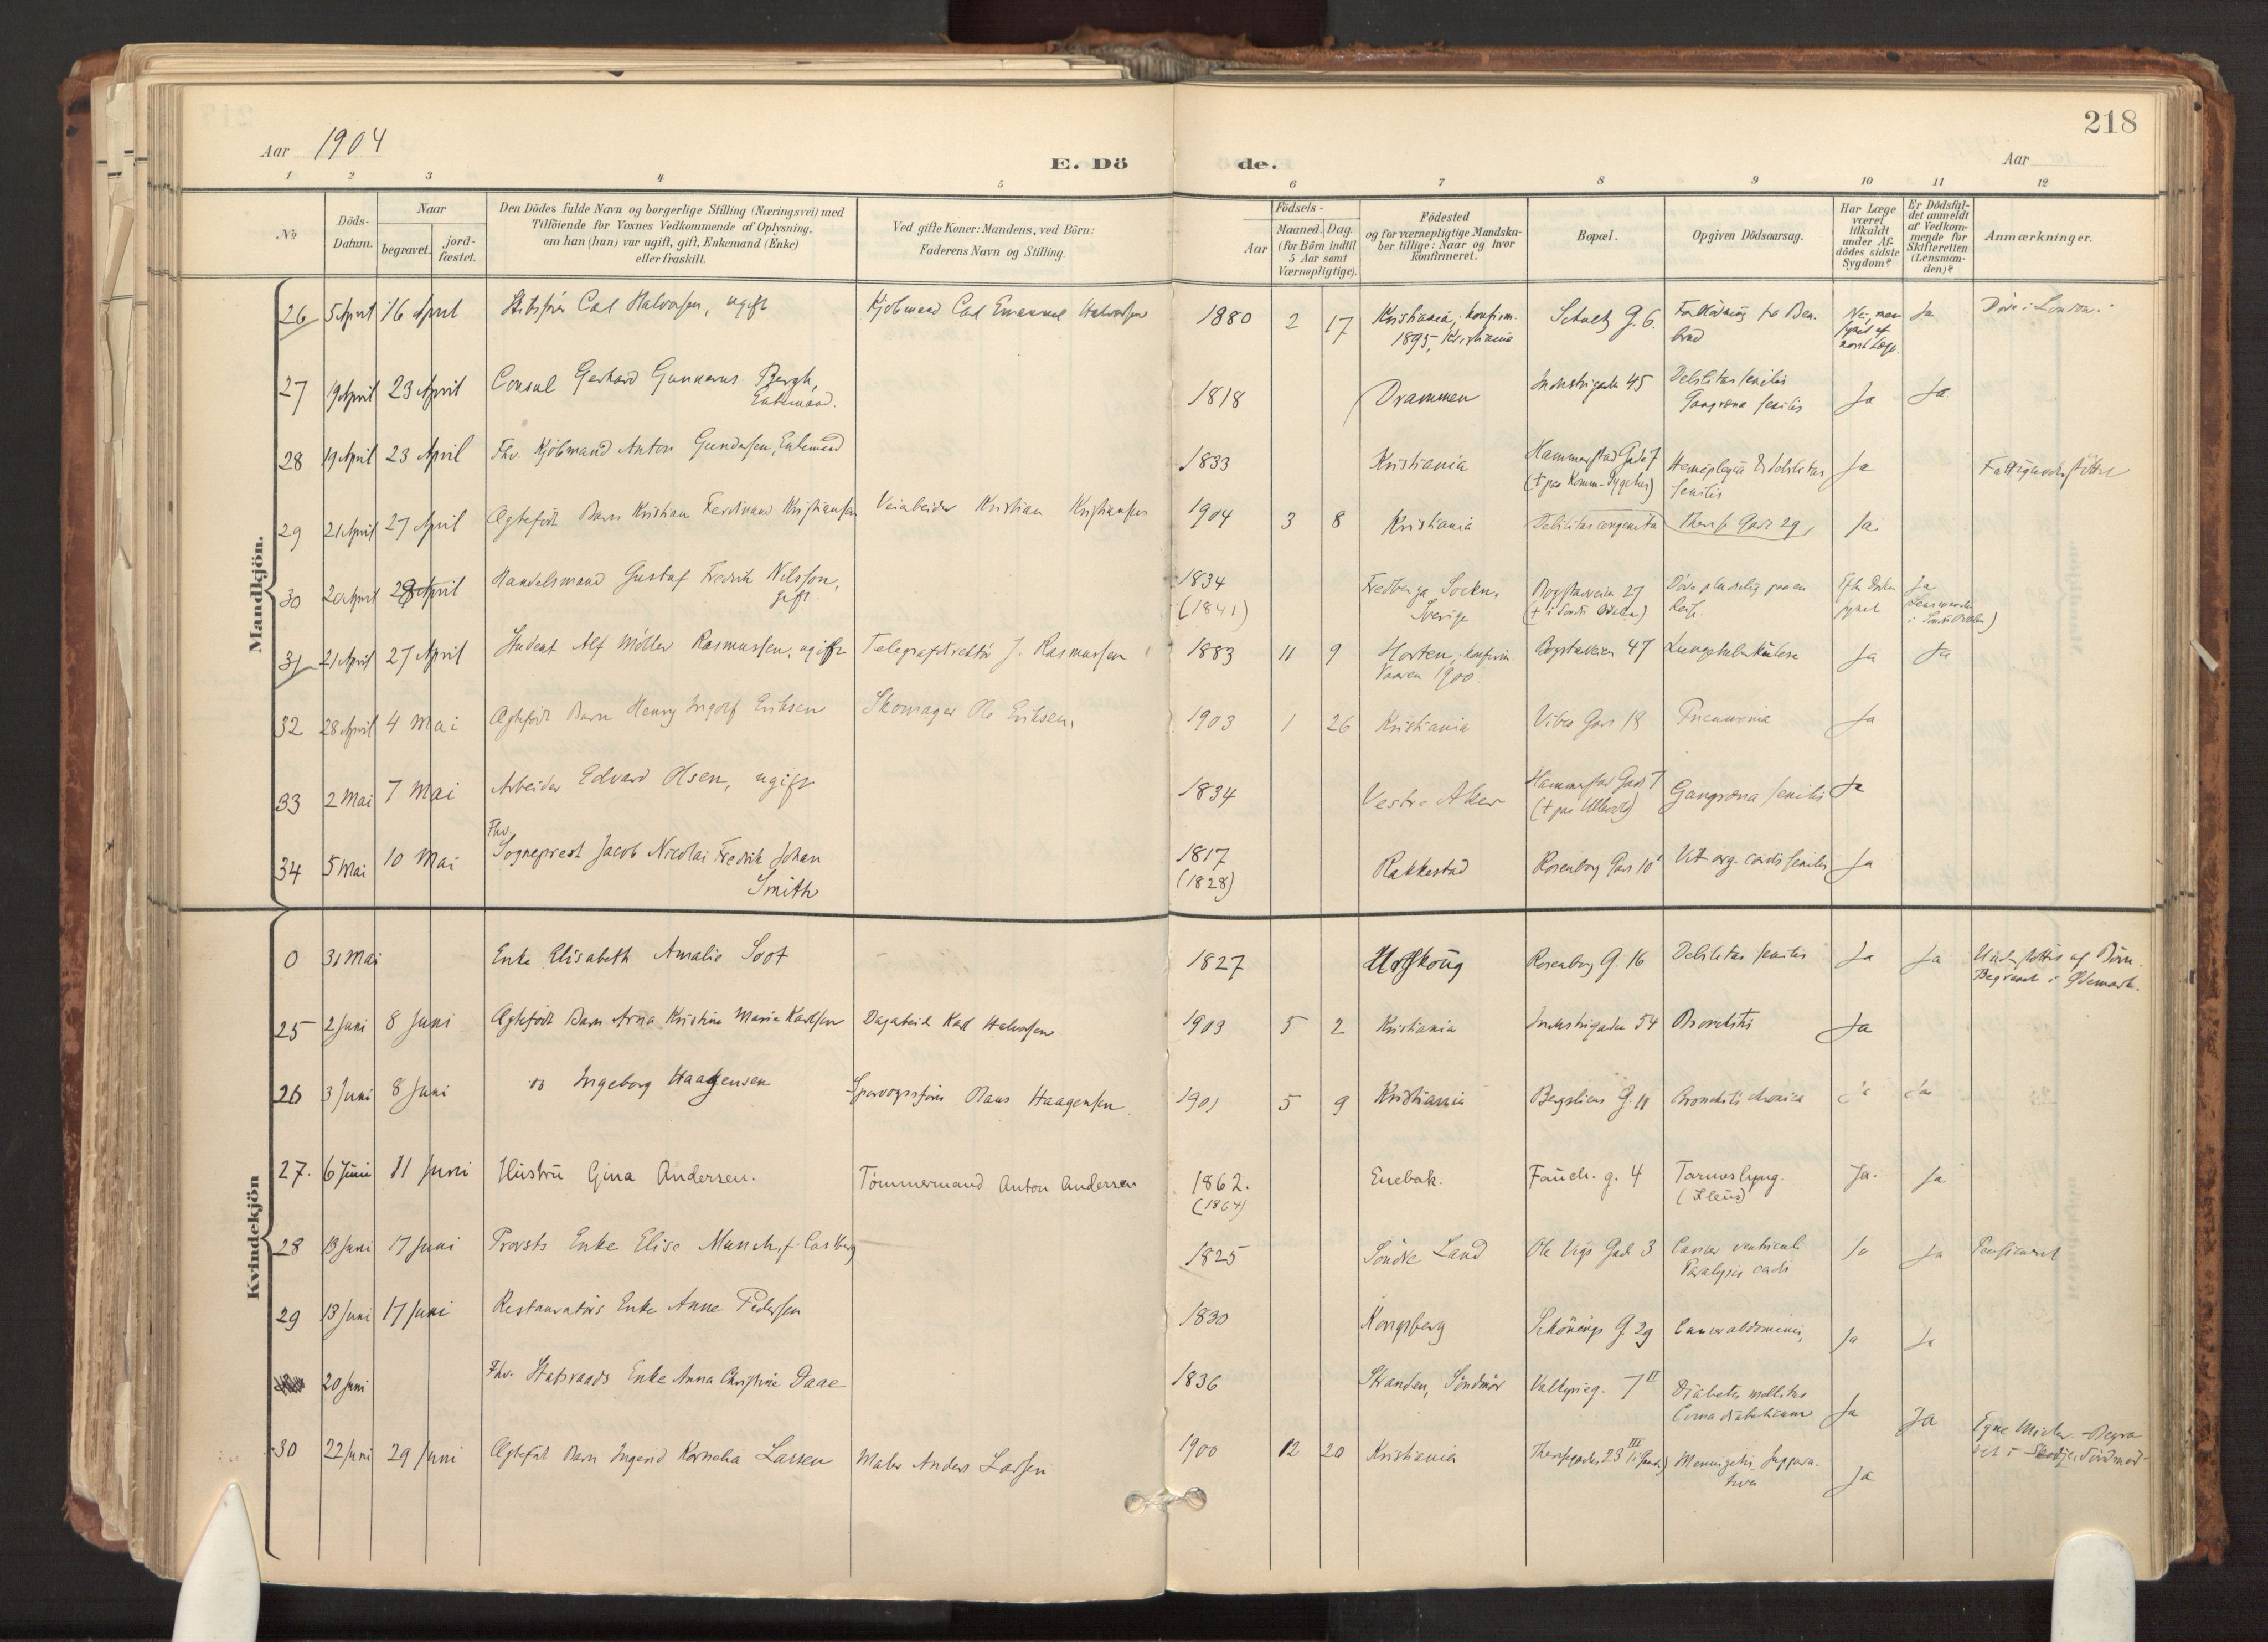 218
Aar 1904
E. Dö
de.
Aar
1 2 3 4 5 6 7 8 9 10 11 12
No.
Döds-
Datum.
Naar
begravet.
jord-
fæstet.
Den Dödes fulde Navn og borgerlige Stilling (Næringsvei) med
Tilföiende for Voxnes Vedkommende af Oplysning,
om han (hun) var ugift, gift, Enkemand (Enke)
eller fraskilt.
Ved gifte Koner: Mandens, ved Börn:
Faderens Navn og Stilling.
Födsels-
Aar
Maaned.
Dag.
(for Börn indtil
5 Aar samt
Værnepligtige).
Födested
og for værnepligtige Mandska-
ber tillige: Naar og hvor
konfirmeret.
Bopæl.
Opgiven Dödsaarsag.
Har Læge
været
tilkaldt
under Af-
dödes sidste
Sygdom?
Er Dödsfal-
det anmeldt
af Vedkom-
mende for
Skifteretten
(Lensman-
den)?
Anmærkninger.
Mandkjön.
26 5 April 16 April Carl Halvorsen, ugift Kjöbmand Carl Emanuel Halvorsen 1880 2 17 Kristiania, konfirm. Schultz G. 6. Ja Död i London.
1895, Kristiania
27 19 April 23 April Consul Gerhard Gunnerus Bergh, 1818 Drammen Industrigaden 45 Debilitas senilis Ja Ja
Enkemand. Gangræna senilis
28 19 April 23 April Fhv. Kjöbmand Anton Gundersen, Enkemand 1833 Kristiania Hammerstad Gade 7 Hemiplegia Debilitas Ja
(+ paa Komm-Sygehus) senilis
29 21 April 27 April Ægtefödt Barn Kristian Ferdinand Kristiansen Veiarbeider Kristian Kristiansen 1904 3 8 Kristiania Debilitas congenita Theres Gade 29, Ja
30 20 April 28 April Handelsmand Gustaf Fredrik Nilsson, 1834 Fredberga Socken, Bogstadveien 27 Ja
gift (1841) Sverige
31 21 April 27 April Student Alf Möller Rasmussen, ugift Telegrafdirektör J. Rasmussen 1883 11 9 Horten, konfirm. Bogstadveien 47 Lungetuberkulose Ja Ja
Vaaren 1900.
32 28 April 4 Mai Ægtefödt Barn Henry Ingolf Eriksen Skomager Ole Eriksen, 1903 1 26 Kristiania Vibes Gade 18 Pneumonia Ja
33 2 Mai 7 Mai Arbeider Edvard Olsen, ugift 1834 Vestre Aker Hammerstad Gade 7 Gangræna senilis Ja
(+ paa Ullevold)
Fhv.
34 5 Mai 10 Mai Sogneprest Jacob Nicolai Fredrik Johan 1817 Rakkestad Rosenborg Gade 10 Vit. org. cordis senilis Ja
Smith (1828)
Kvindekjön
0 31 Mai Enke Elisabeth Amalie Soot 1827 Rosenborg G. 16 Debilitas senilis Ja Ja Understöttes af Börn.
Begravet i Ødemark.
25 2 Juni 8 Juni Ægtefödt Barn Anna Kristine Marie Karlsen Dagarbeid. Karl Halvorsen 1903 5 2 Kristiania Industrigaden 54 Bronchitis Ja
26 3 Juni 8 Juni do Ingeborg Haagensen Sporvognsförer Hans Haagensen 1901 5 9 Kristiania Bergsliens G. 11 Bronchitis chronica Ja Ja
27. 6 Juni 11 Juni Hustru Gina Andersen. Tömmermand Anton Andersen 1862. Enebak. Fauch. g. 4 Tarmslyng. Ja. Ja
(1864) (Ileus)
28 13 Juni 17 Juni Provsts Enke Elise Munch, f. 1825 Söndre Land Ole Vigs Gade 3 Cancer ventriculi Ja Ja Pensioneret
Paralysis cordis
29 13 Juni 17 Juni Restauratörs Enke Anne Pedersen 1830 Kongsberg Schönings G. 29 Cancer abdominis, Ja Ja
20 Juni Fhv. Statsraads Enke Anna Christine Daae 1836 Stranden, Söndmör Valkyrieg. 7 II Diabetes mellitus Ja Ja
Coma diabeticum
30 22 Juni 29 Juni Ægtefödt Barn Ingrid Kornelia Larsen Maler Anders Larsen 1900 12 20 Kristiania Theresegaden 23 III Meningitis suppura- Ja
tiva
Egne Midler. Begra-
vet i Skodje, Söndmör